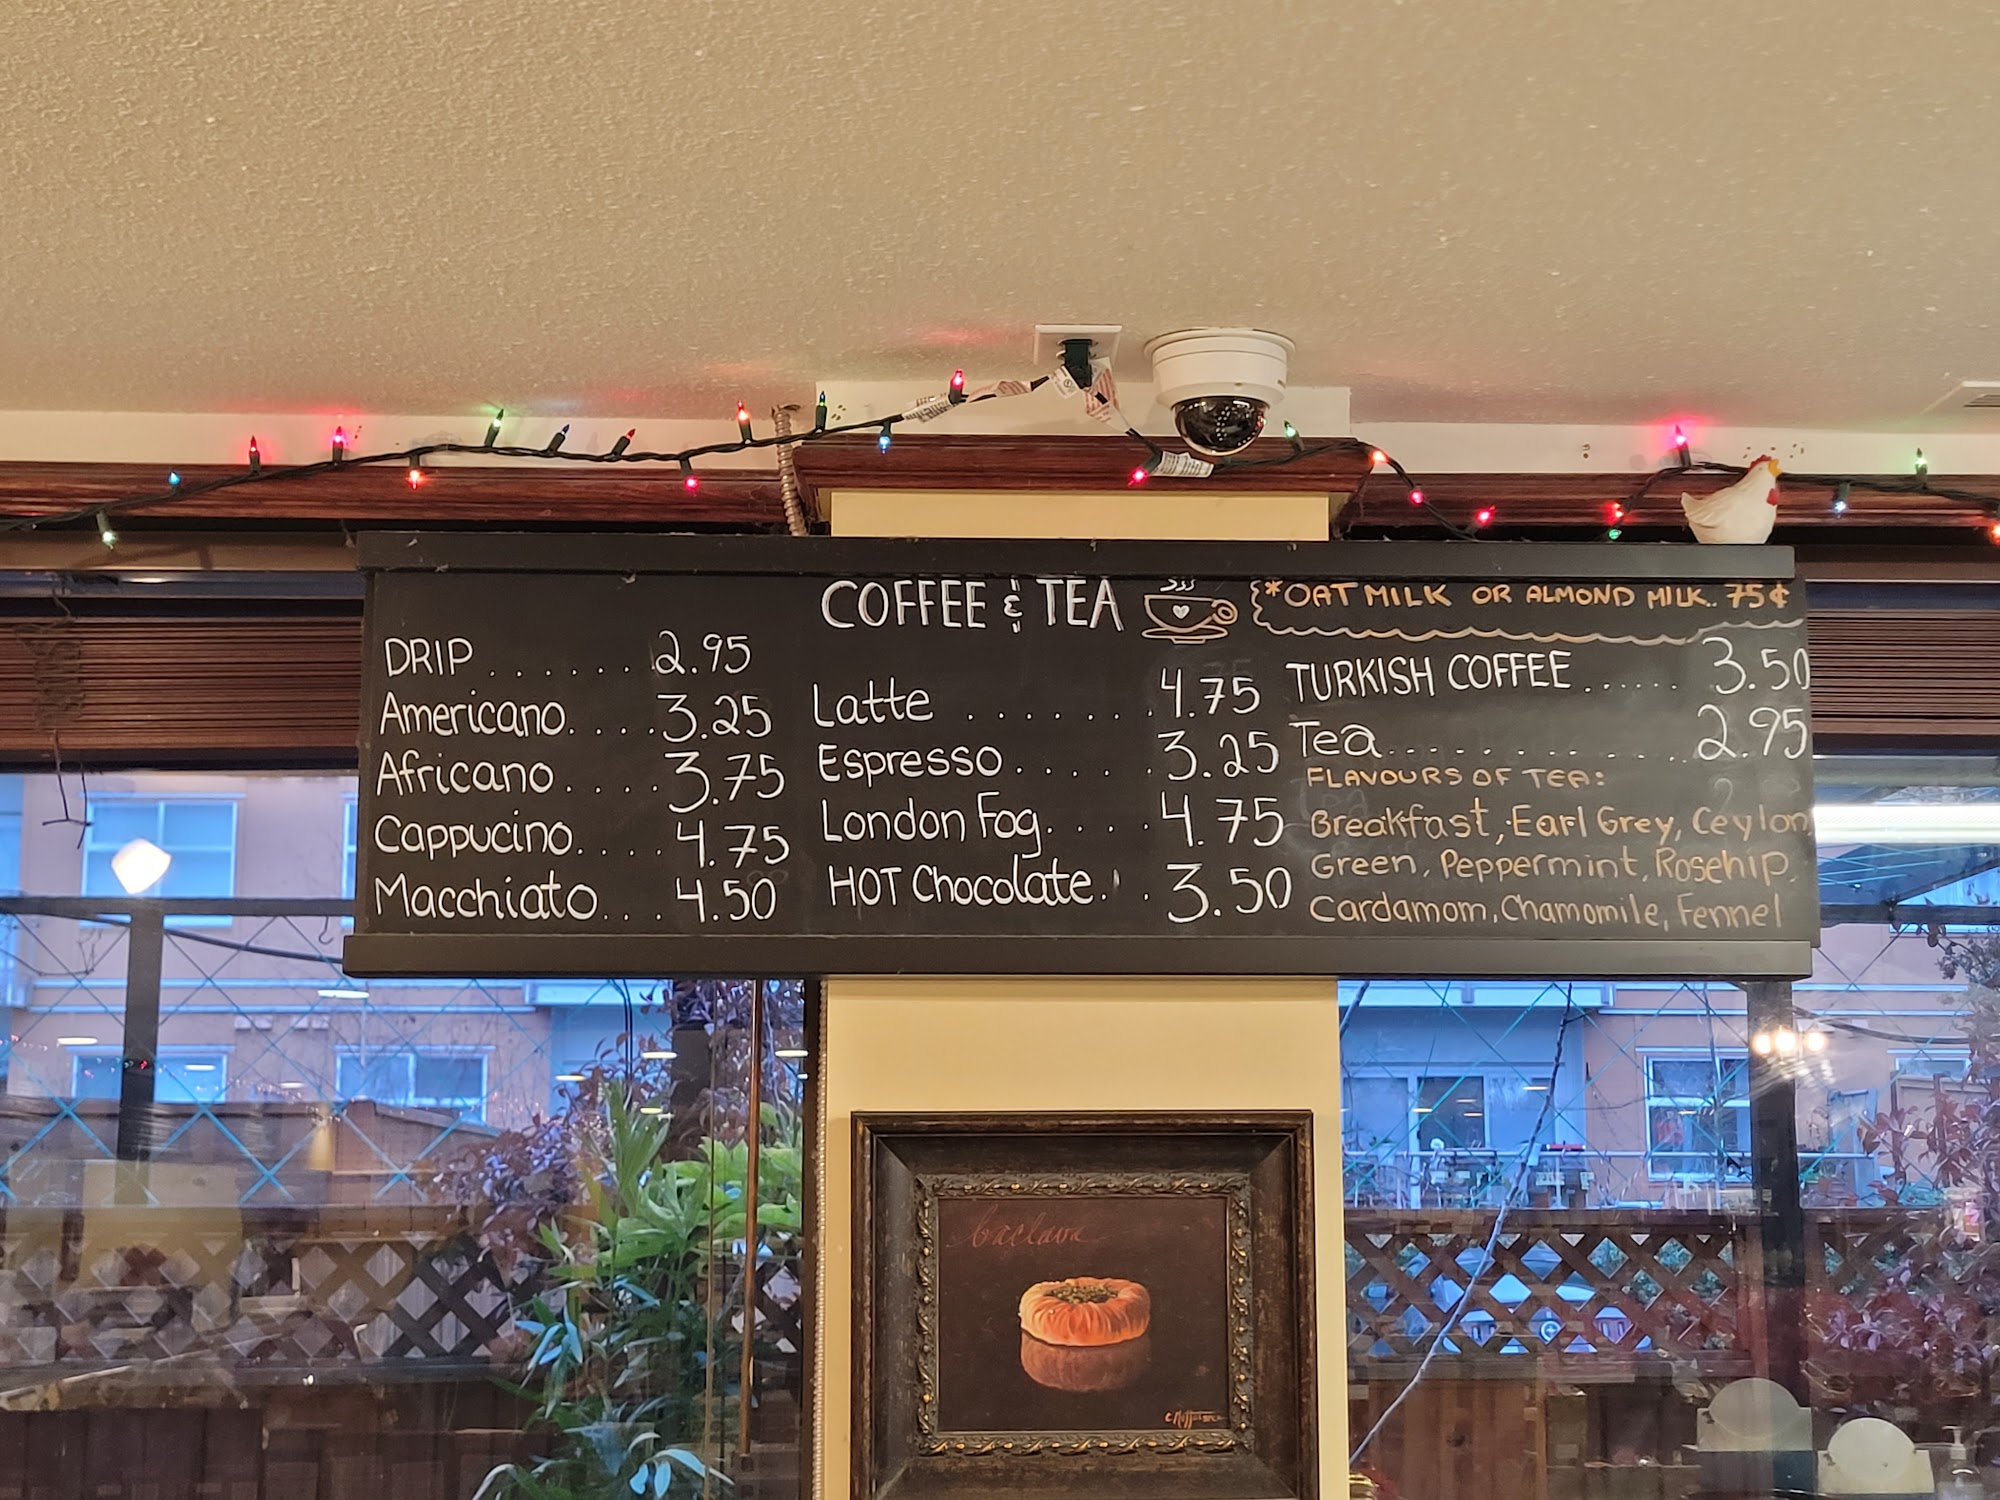 COFFEE & TEA
*OAT MILK OR ALMOND MILK.. 75¢
DRIP ...... 2.95
Americano.... 3.25
Africano.... 3.75
Cappucino.... 4.75
Macchiato... 4.50
Latte ....... 4.75
Espresso..... 3.25
London Fog.... 4.75
HOT Chocolate... 3.50
TURKISH COFFEE...... 3.50
Tea............ 2.95
FLAVOURS OF TEA:
Breakfast, Earl Grey, Ceylon,
Green, Peppermint, Rosehip,
Cardamom, Chamomile, Fennel
baclava